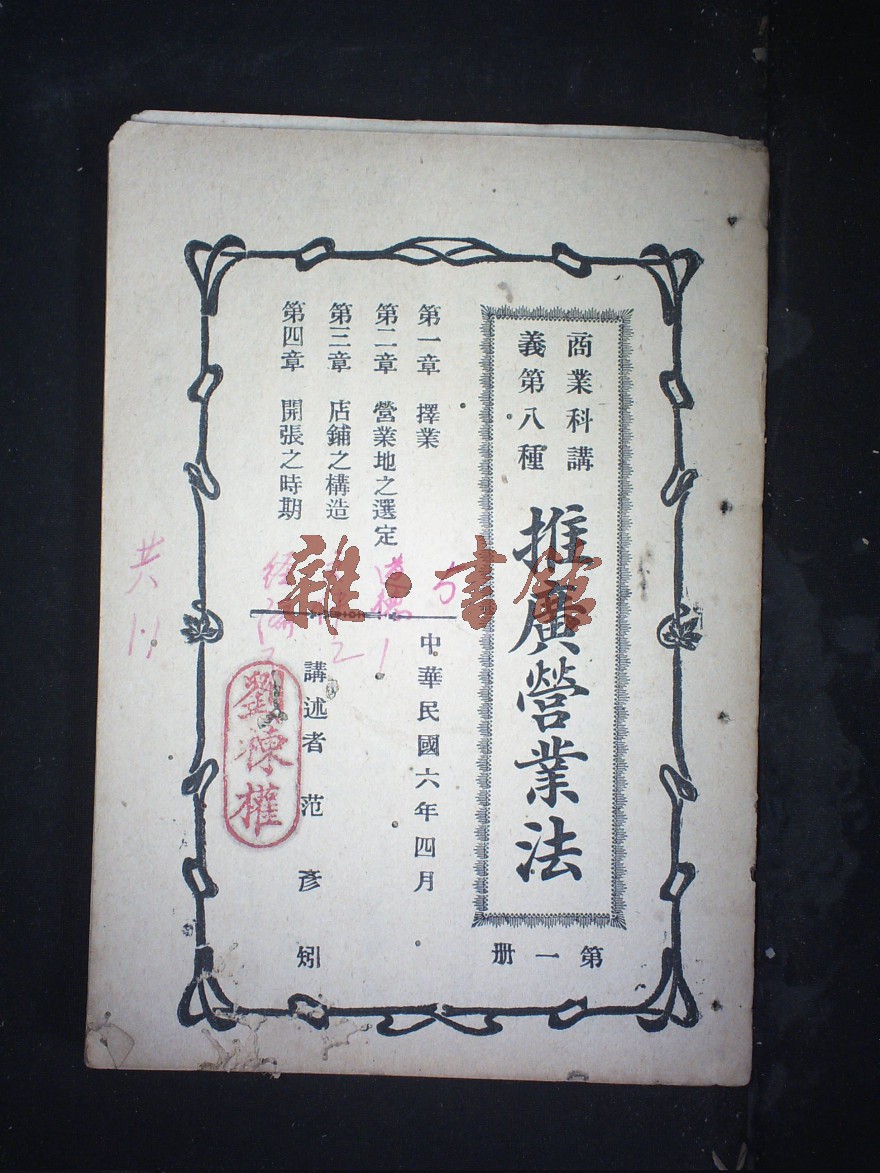 商業科講
義第八種
推廣營業法
第一册
第一章 擇業
第二章 營業地之選定
第三章 店鋪之構造
第四章 開張之時期
中華民國六年四月
講述者 范彥矧
劉棟權
雜·書館
共